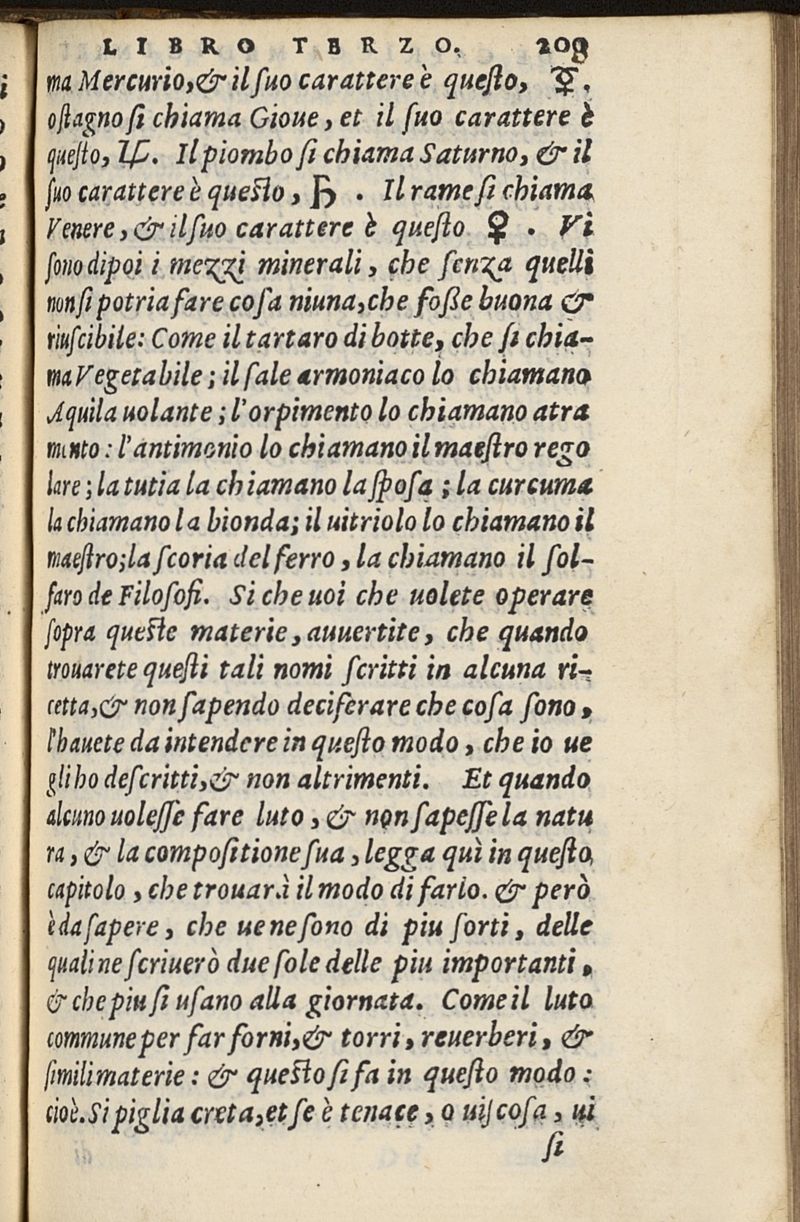 LIBRO TERZO. 209
ma Mercurio, & il ſuo carattere è queſto, ☿.
oſtagno ſi chiama Gioue, et il ſuo carattere è
queſto, ♃. Il piombo ſi chiama Saturno, & il
ſuo carattere è queſto, ♄. Il rame ſi chiama
Venere, & il ſuo carattere è queſto ♀. Vi
ſono dipoi i mezzi minerali, che ſenza quelli
non ſi potria fare coſa niuna, che foſſe buona &
riuſcibile: Come il tartaro di botte, che ſi chia-
ma Vegetabile; il ſale armoniaco lo chiamano
Aquila uolante; l'orpimento lo chiamano atra
mento: l'antimonio lo chiamano il maeſtro rego
lare; la tutia la chiamano la ſpoſa; la curcuma
la chiamano la bionda; il uitriolo lo chiamano il
maeſtro; la ſcoria del ferro, la chiamano il ſol-
faro de Filoſofi. Si che uoi che uolete operare
ſopra queſte materie, auuertite, che quando
trouarete queſti tali nomi ſcritti in alcuna ri-
cetta, & non ſapendo deciferare che coſa ſono,
l'hauete da intendere in queſto modo, che io ue
gli ho deſcritti, & non altrimenti. Et quando
alcuno uoleſſe fare luto, & non ſapeſſe la natu
ra, & la compoſitione ſua, legga quì in queſto
capitolo, che trouarà il modo di farlo. & però
è da ſapere, che ue ne ſono di piu ſorti, delle
quali ne ſcriuerò due ſole delle piu importanti,
& che piu ſi uſano alla giornata. Come il luto
commune per far forni, & torri, reuerberi, &
ſimili materie: & queſto ſi fa in queſto modo:
cioè. Si piglia creta, et ſe è tenace, o uiſcoſa, ui
ſi